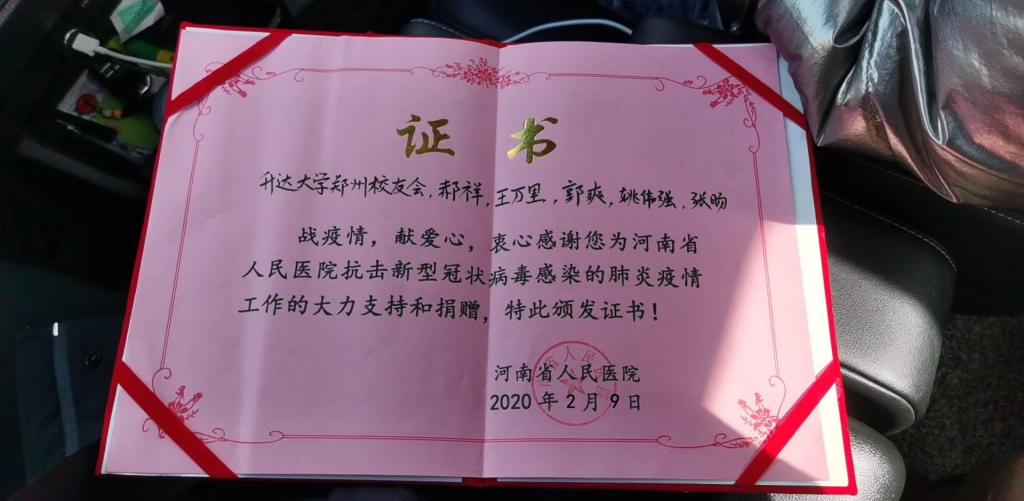 证书
升达大学郑州校友会,郝祥,王万里,郭爽,姚伟强,张昉
战疫情,献爱心,衷心感谢您为河南省
人民医院抗击新型冠状病毒感染的肺炎疫情
工作的大力支持和捐赠,特此颁发证书!
河南省人民医院
2020年2月9日